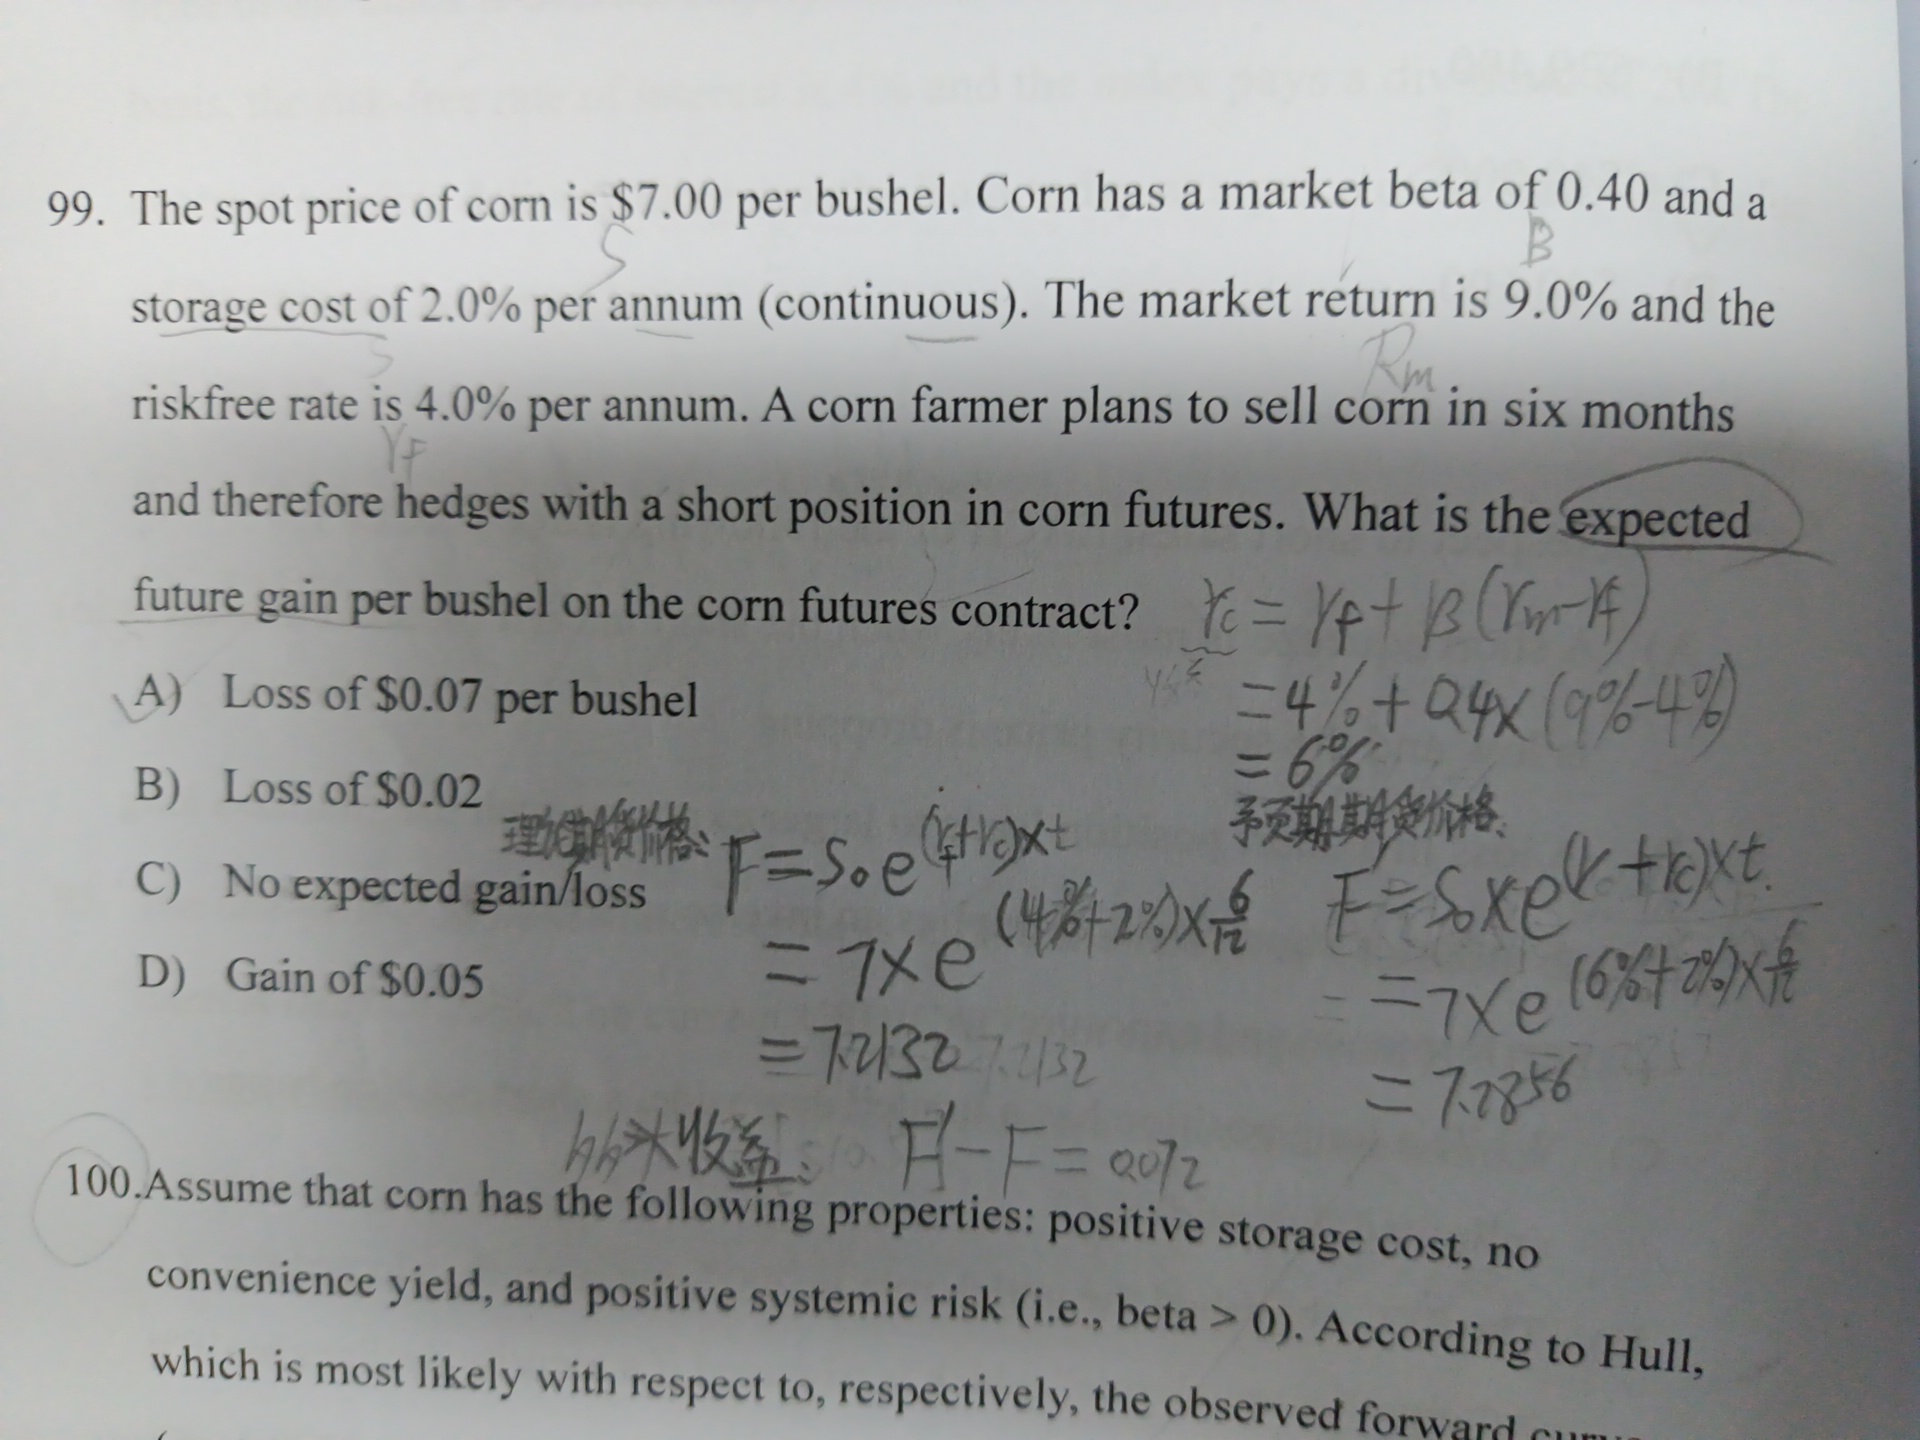 99. The spot price of corn is $7.00 per bushel. Corn has a market beta of 0.40 and a
S
B
storage cost of 2.0% per annum (continuous). The market return is 9.0% and the
S
Rm
riskfree rate is 4.0% per annum. A corn farmer plans to sell corn in six months
rF
and therefore hedges with a short position in corn futures. What is the expected
future gain per bushel on the corn futures contract?
rc = rf + B(rm-rf)
A) Loss of $0.07 per bushel
=4%+0.4×(9%-4%)
=6%
B) Loss of $0.02
理论期货价格:
F=S₀e^(rf+rc)×t
预期期货价格:
F=S₀×e^(r+rc)×t
C) No expected gain/loss
=7×e^(4%+2%)×6/12
=7×e^(6%+2%)×6/12
D) Gain of $0.05
=7.2132 7.2132
=7.2856
收益: F'-F=0.072
100.Assume that corn has the following properties: positive storage cost, no
convenience yield, and positive systemic risk (i.e., beta > 0). According to Hull,
which is most likely with respect to, respectively, the observed forward